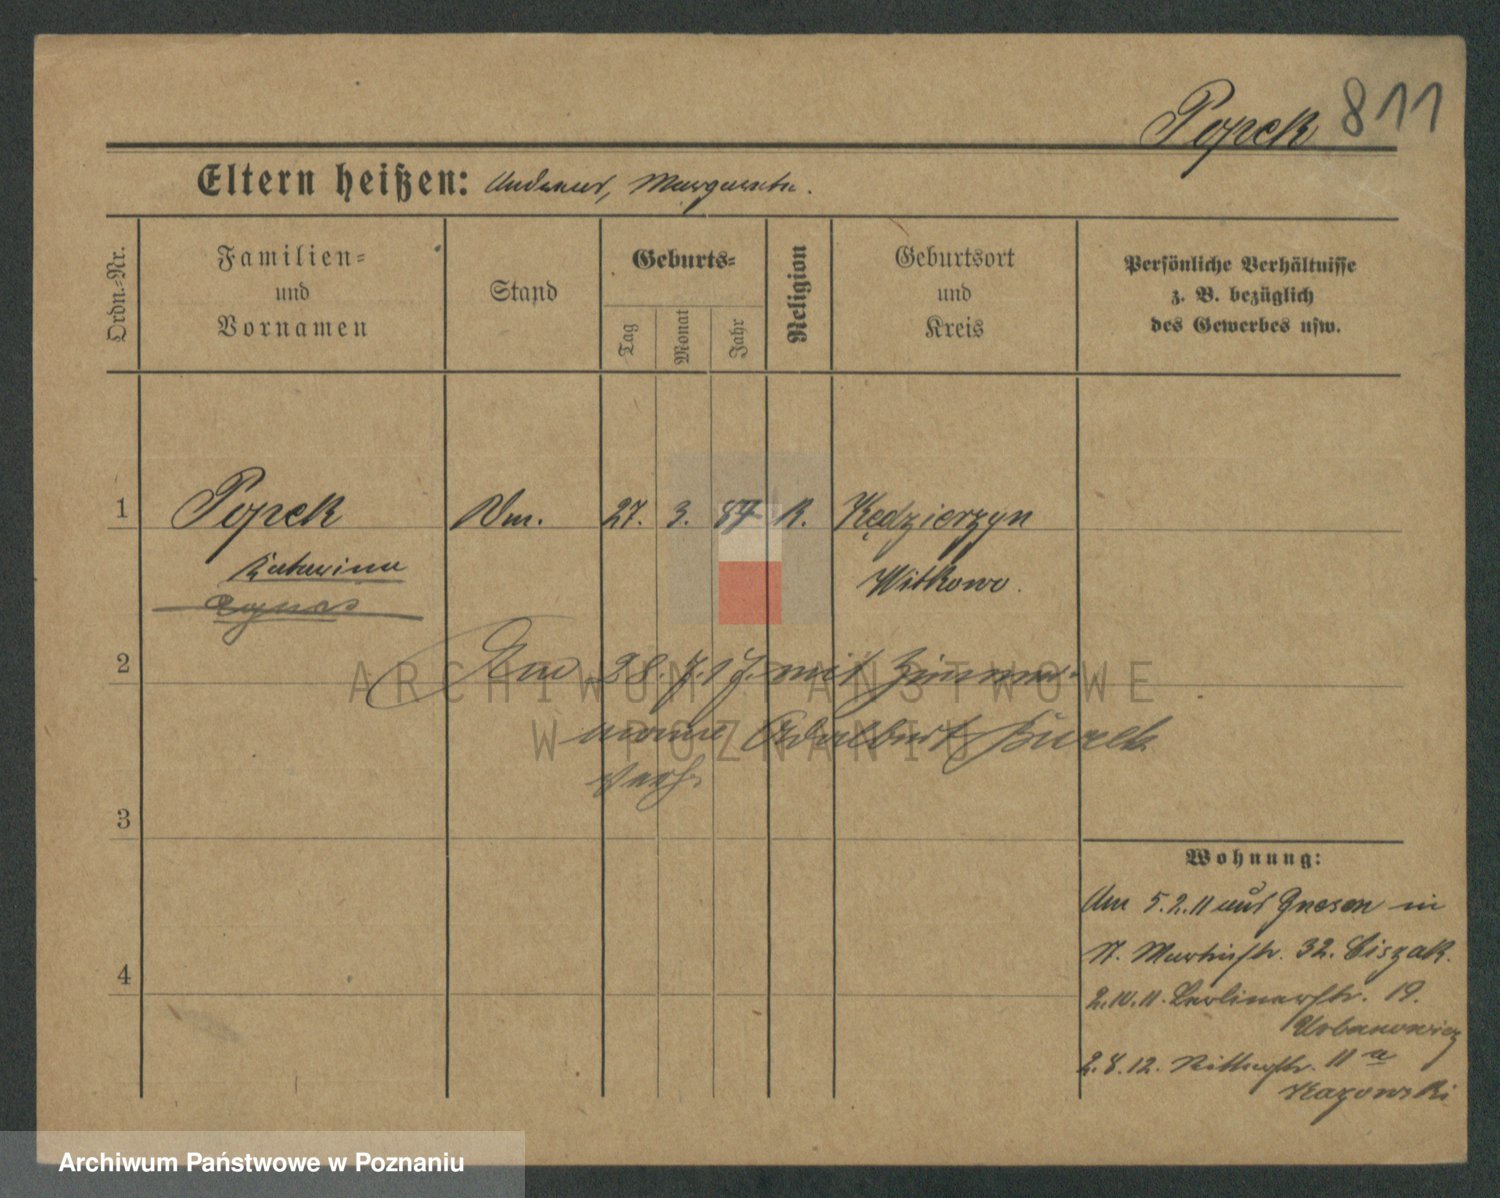 Popek 811
Eltern heißen: Andreas, Margareta.
Ordn.-Nr.
Familien-
und
Vornamen
Stand
Geburts-
Tag
Monat
Jahr
Religion
Geburtsort
und
Kreis
Persönliche Verhältnisse
z. B. bezüglich
des Gewerbes usw.
1 Popek 27. 3. 87 K. Kędzierzyn
Katharina Witkowo.
Agnes
2 Am 28. 7. 17. mit Zimmer-
mann Adalbert
verh.
3
Wohnung:
Am 5.2.11 aus Gnesen in
St. Martinstr. 32. Ciszak.
4
2.10.11. Berlinerstr. 19.
Urbanowicz
2.8.12. Ritterstr. 11 a
ARCHIWUM PAŃSTWOWE
W POZNANIU
Archiwum Państwowe w Poznaniu